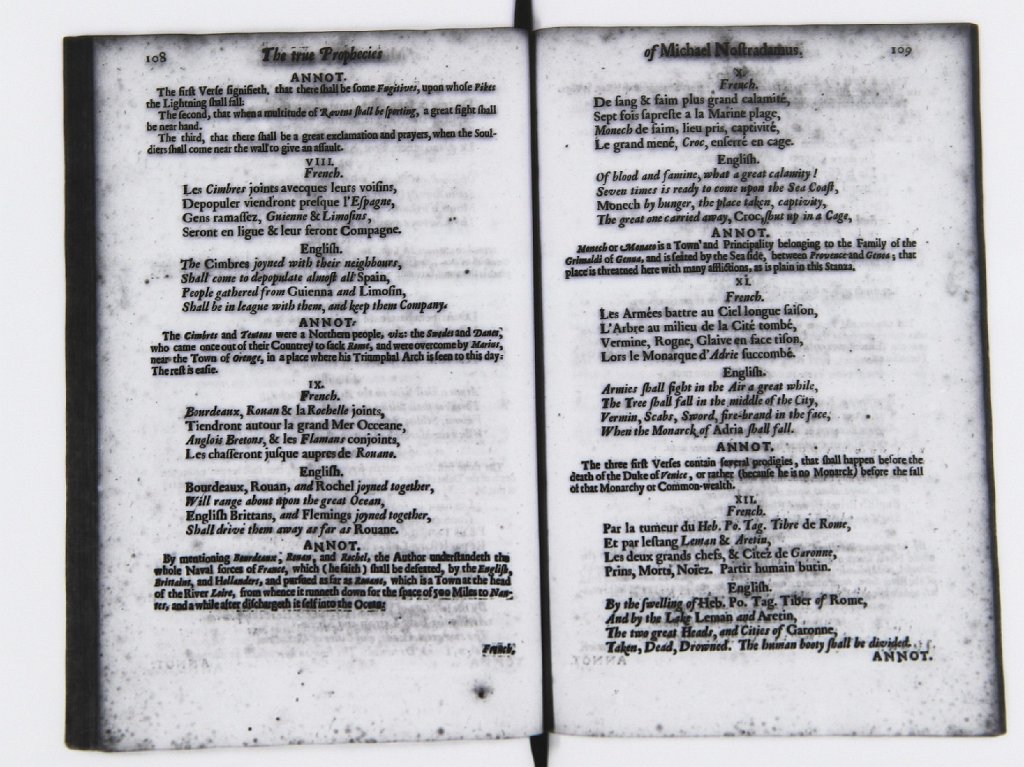 108 The true Prophecies
ANNOT.
The first Verse signifieth, that there shall be some Fugitives, upon whose Pikes
the Lightning shall fall:
The second, that when a multitude of Ravens shall be sporting, a great fight shall
be near hand.
The third, that there shall be a great exclamation and prayers, when the Soul-
diers shall come near the wall to give an assault.
VIII.
French.
Les Cimbres joints avecques leurs voisins,
Depopuler viendront presque l'Espagne,
Gens ramassez, Guienne & Limosins,
Seront en ligue & leur feront Compagne.
English.
The Cimbres joyned with their neighbours,
Shall come to depopulate almost all Spain,
People gathered from Guienna and Limosin,
Shall be in league with them, and keep them Company.
ANNOT:
The Cimbres and Teutons were a Northern people, viz: the Swedes and Danes,
who came once out of their Countrey to sack Rome, and were overcome by Marius,
near the Town of Orenge, in a place where his Triumphal Arch is seen to this day:
The rest is easie.
IX.
French.
Bourdeaux, Rouan & la Rochelle joints,
Tiendront autour la grand Mer Occeane,
Anglois Bretons, & les Flamans conjoints,
Les chasseront jusque aupres de Rouane.
English.
Bourdeaux, Rouan, and Rochel joyned together,
Will range about upon the great Ocean,
English Brittans, and Flemings joyned together,
Shall drive them away as far as Rouane.
ANNOT.
By mentioning Bourdeaux, Rouen, and Rochel, the Author understandeth the
whole Naval forces of France, which (he saith) shall be defeated, by the English,
Brittains, and Hollanders, and pursued as far as Rouane, which is a Town at the head
of the River Loire, from whence it runneth down for the space of 500 Miles to Nan-
tes, and a while after dischargeth it self into the Ocean:
French.
of Michael Nostradamus. 109
X.
French.
De sang & faim plus grand calamité,
Sept fois sapreste a la Marine plage,
Monech de faim, lieu pris, captivité,
Le grand mené, Croc, enserré en cage.
English.
Of blood and famine, what a great calamity!
Seven times is ready to come upon the Sea Coast,
Monech by hunger, the place taken, captivity,
The great one carried away, Croc, shut up in a Cage,
ANNOT.
Monech or Monaco is a Town and Principality belonging to the Family of the
Grimaldi of Genoa, and is seized by the Sea side, between Provence and Genoa; that
place is threatned here with many afflictions, as is plain in this Stanza.
XI.
French.
Les Armées battre au Ciel longue saison,
L'Arbre au milieu de la Cité tombé,
Vermine, Rogne, Glaive en face tison,
Lors le Monarque d'Adrie succombé.
English.
Armies shall fight in the Air a great while,
The Tree shall fall in the middle of the City,
Vermin, Scabs, Sword, fire-brand in the face,
When the Monarck of Adria shall fall.
ANNOT.
The three first Verses contain several prodigies, that shall happen before the
death of the Duke of Venice, or rather (because he is no Monarck) before the fall
of that Monarchy or Common-wealth.
XII.
French.
Par la tumeur du Heb. Po. Tag. Tibre de Rome,
Et par lestang Leman & Aretin,
Les deux grands chefs, & Citez de Garonne,
Prins, Morts, Noiez. Partir humain butin.
English.
By the swelling of Heb. Po. Tag. Tiber of Rome,
And by the Lake Leman and Aretin,
The two great Heads, and Cities of Garonne,
Taken, Dead, Drowned. The human booty shall be divided.
ANNOT.